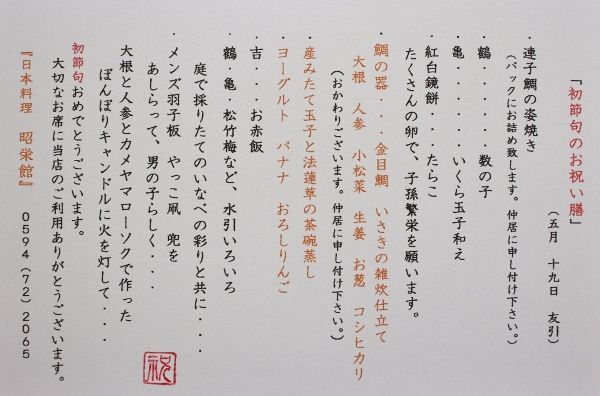 「初節句のお祝い膳」
（五月　十九日　友引）
・連子鯛の姿焼き
（パックにお詰め致します。仲居に申し付け下さい。）
・鶴・・・・・数の子
・亀・・・・・いくら玉子和え
・紅白鏡餅・・・たらこ
たくさんの卵で、子孫繁栄を願います。
・鯛の器・・・金目鯛　いさきの雑炊仕立て
大根　人参　小松菜　生姜　お葱　コシヒカリ
（おかわりございます。仲居に申し付け下さい。）
・産みたて玉子と法蓮草の茶碗蒸し
・ヨーグルト　バナナ　おろしりんご
・吉・・・お赤飯
・鶴・亀・松竹梅など、水引いろいろ
庭で採りたてのいなべの彩りと共に・・・
・メンズ羽子板　やっこ凧　兜を
あしらって、男の子らしく・・・
大根と人参とカメヤマローソクで作った
ぼんぼりキャンドルに火を灯して・・・
初節句おめでとうございます。
大切なお席に当店のご利用ありがとうございます。
『日本料理　昭栄館』　0594(72)2065
祝